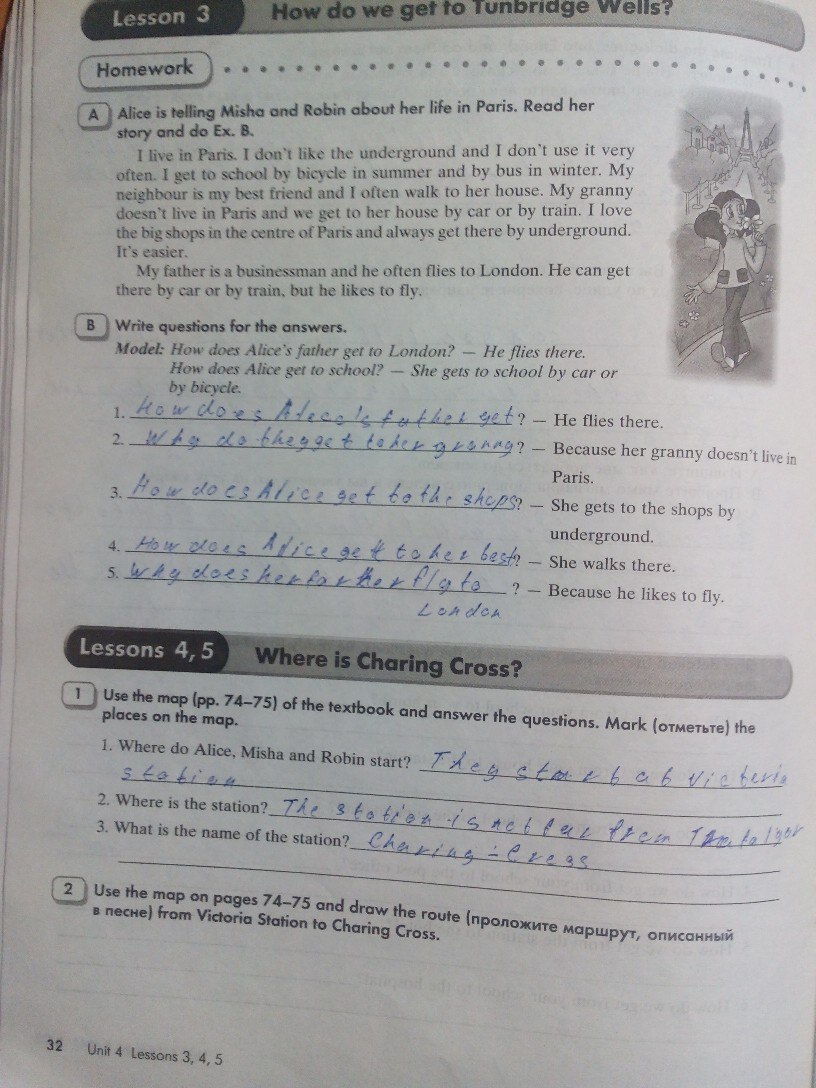 Lesson 3 How do we get to Tunbridge Wells?
Homework
A Alice is telling Misha and Robin about her life in Paris. Read her
story and do Ex. B.
I live in Paris. I don't like the underground and I don't use it very
often. I get to school by bicycle in summer and by bus in winter. My
neighbour is my best friend and I often walk to her house. My granny
doesn't live in Paris and we get to her house by car or by train. I love
the big shops in the centre of Paris and always get there by underground.
It's easier.
My father is a businessman and he often flies to London. He can get
there by car or by train, but he likes to fly.
B Write questions for the answers.
Model: How does Alice's father get to London? — He flies there.
How does Alice get to school? — She gets to school by car or
by bicycle.
1. How does Alece's father get? — He flies there.
2. Why do they get to her granny? — Because her granny doesn't live in
Paris.
3. How does Alice get to the shops? — She gets to the shops by
underground.
4. How does Alice get to her best? — She walks there.
5. Why does her farther fly to ? — Because he likes to fly.
London
Lessons 4, 5 Where is Charing Cross?
1 Use the map (pp. 74–75) of the textbook and answer the questions. Mark (отметьте) the
places on the map.
1. Where do Alice, Misha and Robin start? They start at Victoria
station
2. Where is the station? The station is not far from
3. What is the name of the station? Charing - Cross
2 Use the map on pages 74–75 and draw the route (проложите маршрут, описанный
в песне) from Victoria Station to Charing Cross.
32 Unit 4 Lessons 3, 4, 5